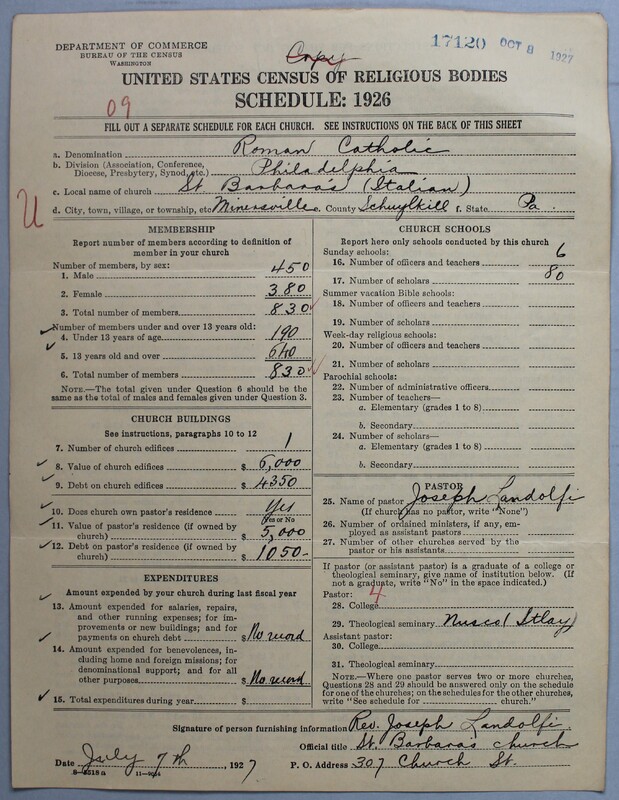 DEPARTMENT OF COMMERCE
BUREAU OF THE CENSUS
WASHINGTON
Copy
17120 OCT 8 1927
UNITED STATES CENSUS OF RELIGIOUS BODIES
SCHEDULE: 1926
09
FILL OUT A SEPARATE SCHEDULE FOR EACH CHURCH. SEE INSTRUCTIONS ON THE BACK OF THIS SHEET
a. Denomination Roman Catholic
b. Division (Association, Conference, Diocese, Presbytery, Synod, etc.) Philadelphia
c. Local name of church St Barbaras (Italian)
d. City, town, village, or township, etc Minersville e. County Schuylkill f. State Pa.
U
MEMBERSHIP
Report number of members according to definition of
member in your church
Number of members, by sex:
1. Male 450
2. Female 380
3. Total number of members 830
Number of members under and over 13 years old:
4. Under 13 years of age 190
5. 13 years old and over 640
6. Total number of members 830
NOTE.—The total given under Question 6 should be the
same as the total of males and females given under Question 3.
CHURCH BUILDINGS
See instructions, paragraphs 10 to 12
7. Number of church edifices 1
8. Value of church edifices $ 6,000
9. Debt on church edifices $ 4350
10. Does church own pastor's residence? Yes
(Yes or No)
11. Value of pastor's residence (if owned by
church) $ 5,000
12. Debt on pastor's residence (if owned by
church) $ 1050-
EXPENDITURES
Amount expended by your church during last fiscal year
13. Amount expended for salaries, repairs,
and other running expenses; for im-
provements or new buildings; and for
payments on church debt $ No record
14. Amount expended for benevolences, in-
cluding home and foreign missions; for
denominational support; and for all
other purposes $ No record
15. Total expenditures during year $
CHURCH SCHOOLS
Report here only schools conducted by this church
Sunday schools:
16. Number of officers and teachers 6
17. Number of scholars 80
Summer vacation Bible schools:
18. Number of officers and teachers
19. Number of scholars
Week-day religious schools:
20. Number of officers and teachers
21. Number of scholars
Parochial schools:
22. Number of administrative officers
23. Number of teachers—
a. Elementary (grades 1 to 8)
b. Secondary
24. Number of scholars—
a. Elementary (grades 1 to 8)
b. Secondary
PASTOR
25. Name of pastor Joseph Landolfi
(If church has no pastor, write "None")
26. Number of ordained ministers, if any, em-
ployed as assistant pastors
27. Number of other churches served by the
pastor or his assistants
If pastor (or assistant pastor) is a graduate of a college or
theological seminary, give name of institution below. (If
not a graduate, write "No" in the space indicated.)
Pastor: 4
28. College
29. Theological seminary Nusco (Itlay)
Assistant pastor:
30. College
31. Theological seminary
NOTE.—Where one pastor serves two or more churches,
Questions 28 and 29 should be answered only on the schedule
for one of the churches; on the schedules for the other churches,
write "See schedule for church."
Signature of person furnishing information Rev. Joseph Landolfi
Official title St. Barbaras church
Date July 7th, 1927 P. O. Address 307 Church St.
8-5518a 11-9014